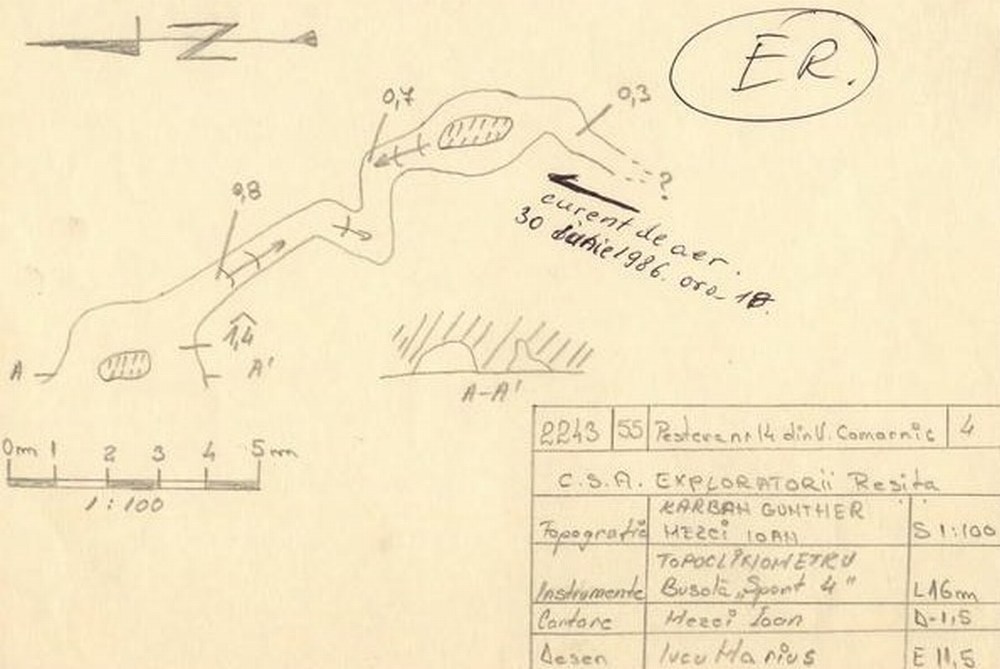 N
ER.
0,7
0,3
?
0,8
curent de aer.
30 iunie 1986. ora 18.
1,4
A A'
A-A'
0m 1 2 3 4 5m
1:100
2243 55 Pestera nr 14 din V. Comarnic 4
C.S.A. EXPLORATORii Resita
Topografie KARBAN GUNTHER
MEZCi IOAN S 1:100
TOPOCLINOMETRU
Instrumente Busolă „Sport 4" L16m
Cartare Mezci Ioan D-1,5
Desen Iucu Marius E 11,5